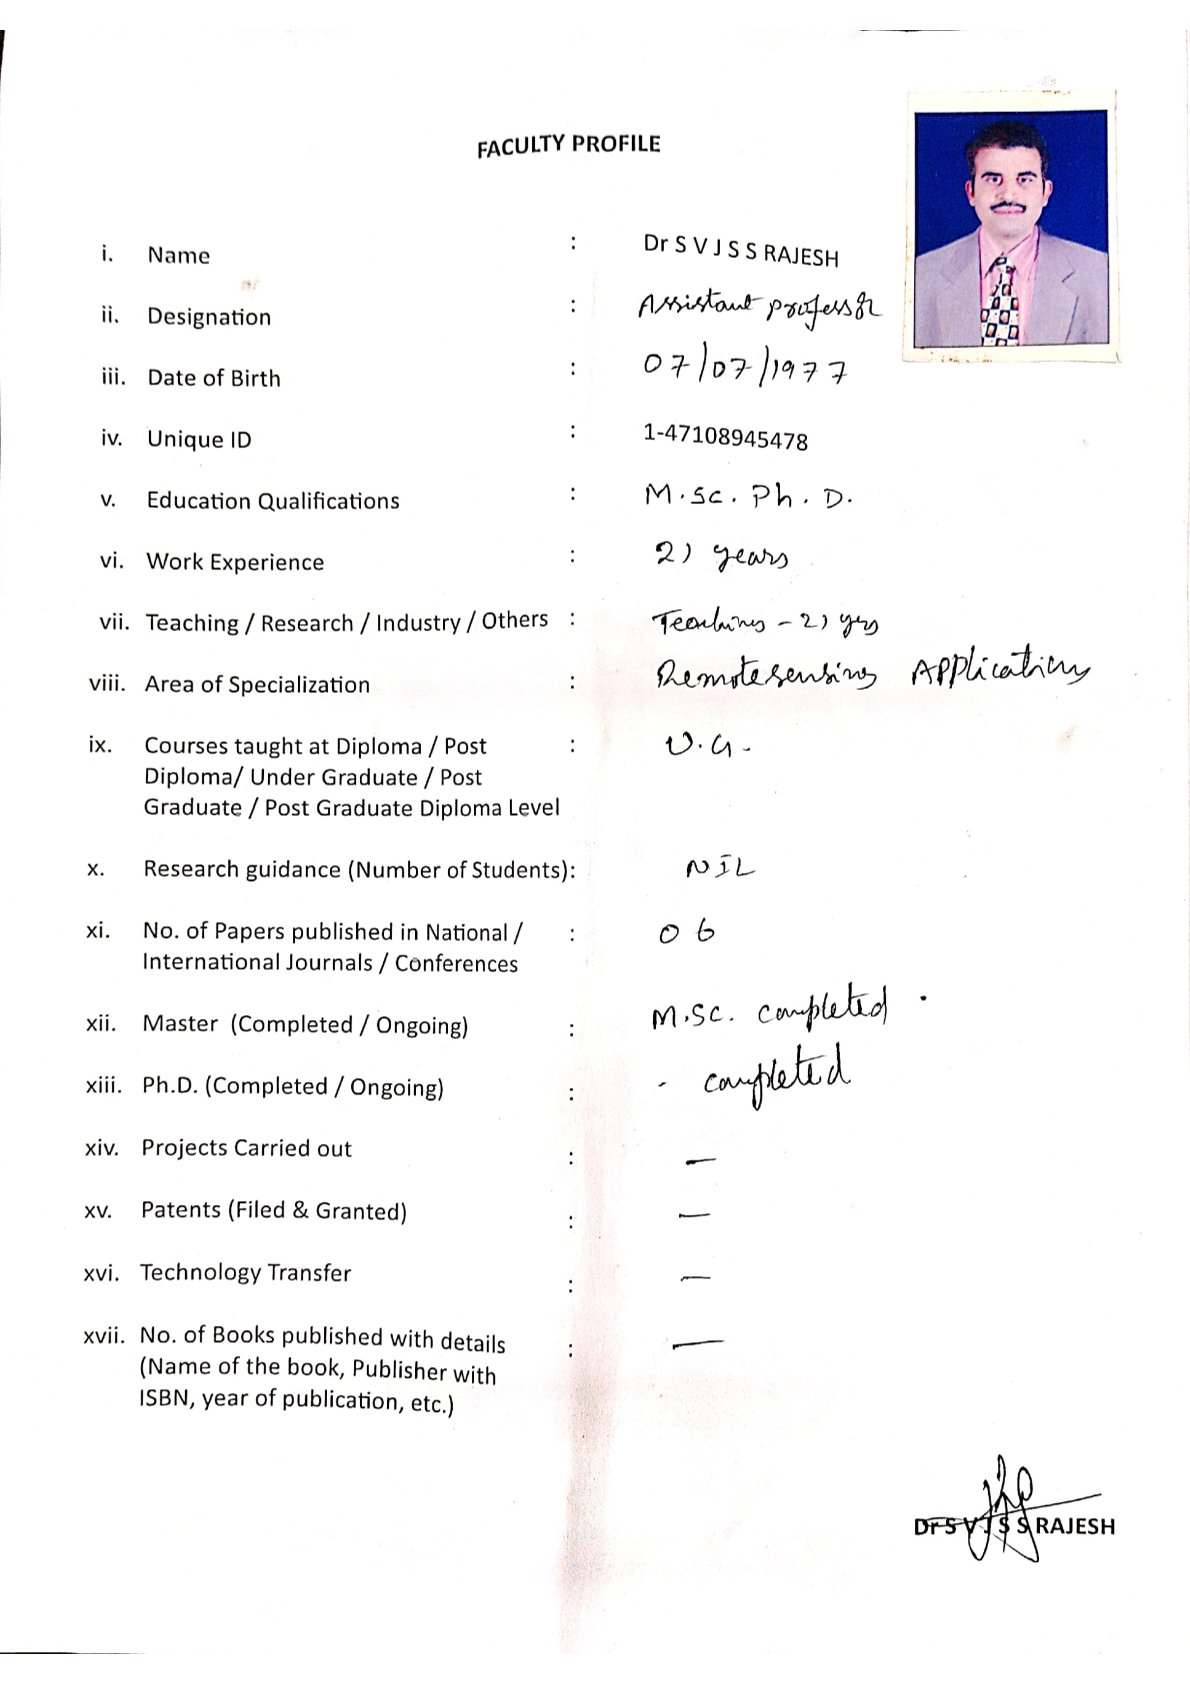 FACULTY PROFILE
i. Name : Dr S V J S S RAJESH
ii. Designation : Assistant professor
iii. Date of Birth : 07/07/1977
iv. Unique ID : 1-47108945478
v. Education Qualifications : M.Sc. Ph. D.
vi. Work Experience : 21 years
vii. Teaching / Research / Industry / Others : Teaching - 21 yrs
viii. Area of Specialization : Remotesensing Applications
ix. Courses taught at Diploma / Post : U.G.
Diploma/ Under Graduate / Post
Graduate / Post Graduate Diploma Level
x. Research guidance (Number of Students): NIL
xi. No. of Papers published in National / : 06
International Journals / Conferences
xii. Master (Completed / Ongoing) : M.SC. completed .
xiii. Ph.D. (Completed / Ongoing) : - completed
xiv. Projects Carried out : —
xv. Patents (Filed & Granted) : —
xvi. Technology Transfer : —
xvii. No. of Books published with details : —
(Name of the book, Publisher with
ISBN, year of publication, etc.)
Dr S V J S S RAJESH